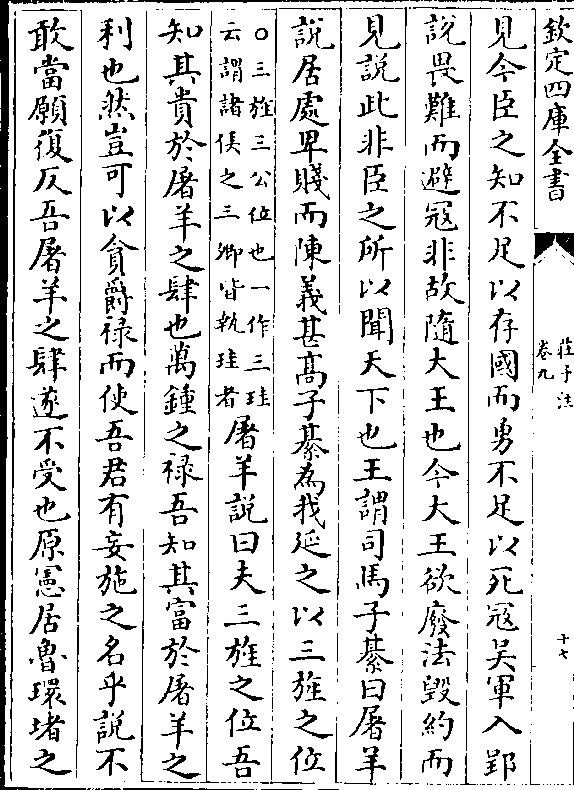 欽定四庫全書
莊子注
卷九
十七
見今臣之知不足以存國而勇不足以死冦吴軍入郢
說畏難而避冦非故隨大王也今大王欲廢法毁約而
見說此非臣之所以聞天下也王謂司馬子綦曰屠羊
說居處卑賤而陳義甚髙子綦為我延之以三旌之位
○三旌三公位也一作三珪
云謂諸侯之三卿皆執珪者
屠羊說曰夫三旌之位吾
知其貴於屠羊之肆也萬鍾之禄吾知其富於屠羊之
利也然豈可以貪爵禄而使吾君有妄施之名乎說不
敢當願復反吾屠羊之肆遂不受也原憲居魯環堵之